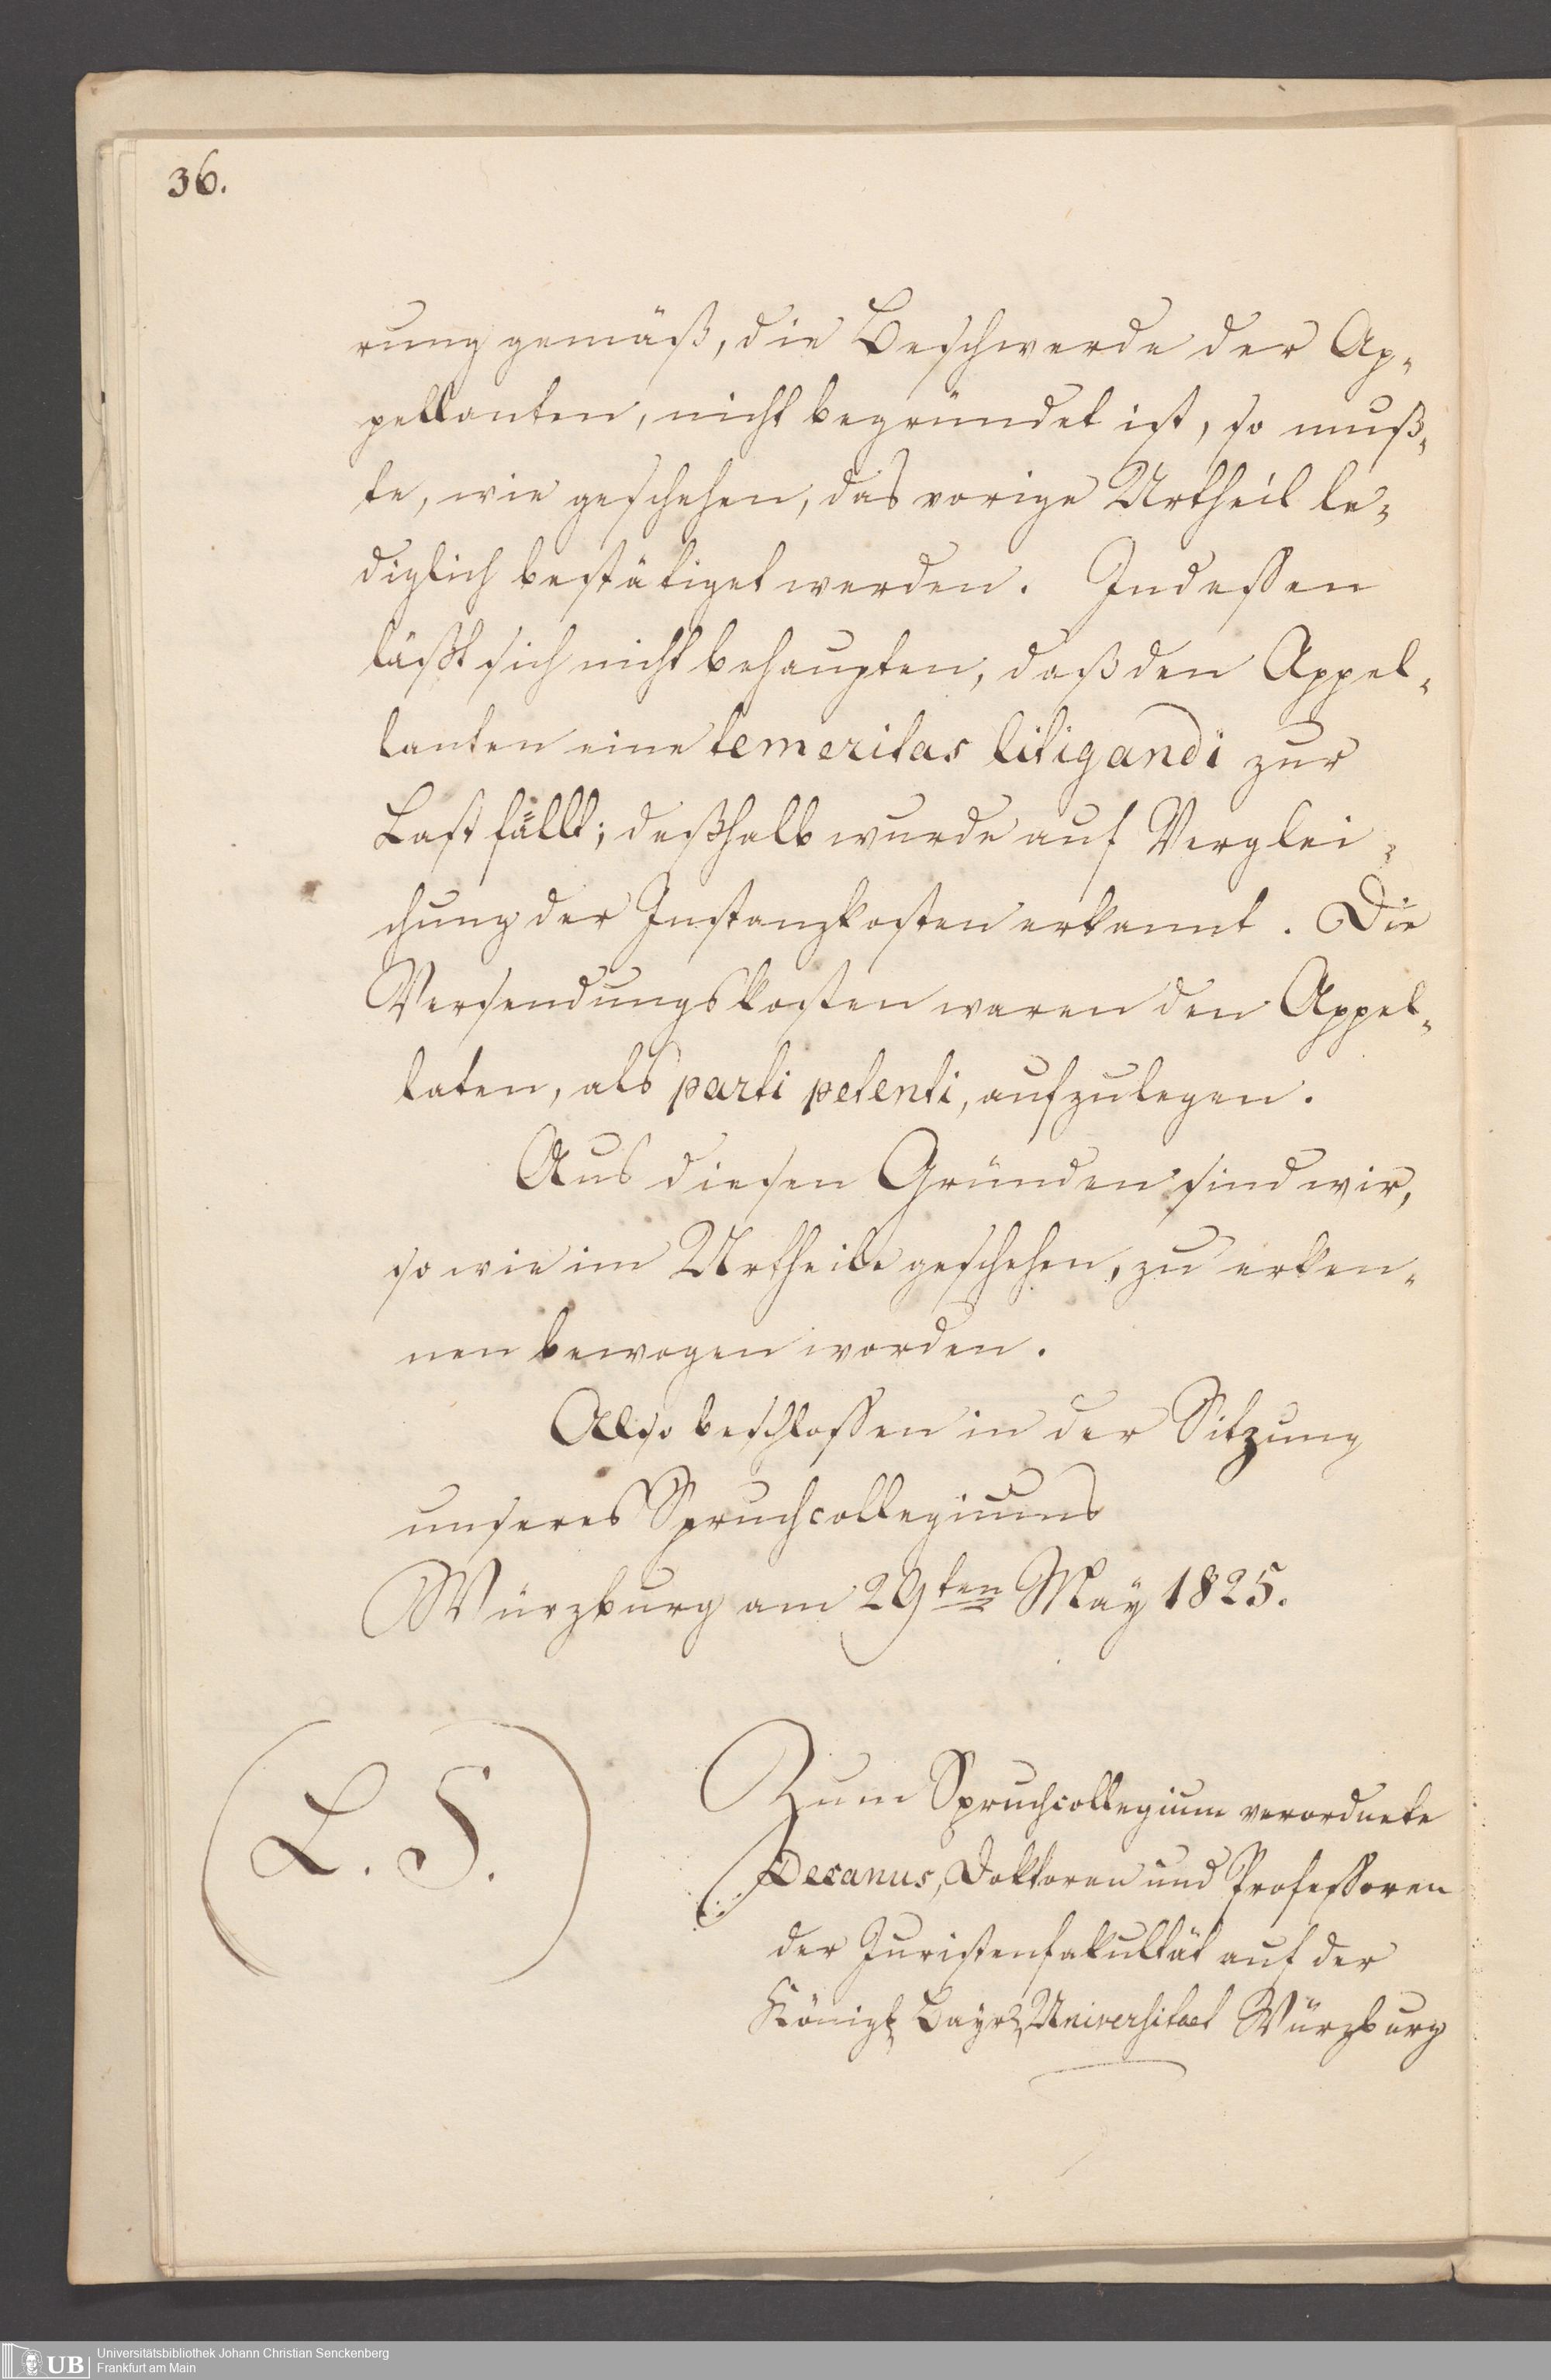 36.
rung gemäß, die Beschwerde der Ap-
pellanten, nicht begründet ist, so muß-
te, wie geschehen, das vorige Urtheil le-
diglich bestätiget werden. Indessen
läßt sich nicht behaupten, daß den Appel-
lanten eine temeritas litigandi zur
Last fällt; deßhalb wurde auf Verglei-
chung der Instanzkosten erkannt. Die
Versendungskosten waren den Appel-
laten, als parti petenti, aufzulegen.
Aus diesen Gründen sind wir,
so wie im Urtheile geschehen, zu erken-
nen bewogen worden.
Also beschlossen in der Sitzung
unseres Spruchcollegiums
Würzburg am 29ten May 1825.
(L. S.)
Zum Spruchcollegium verordnete
Decanus, Doktoren und Professoren
der Juristenfakultät auf der
Königl. Bayr. Universitaet Würzburg
Universitätsbibliothek Johann Christian Senckenberg
UB
Frankfurt am Main